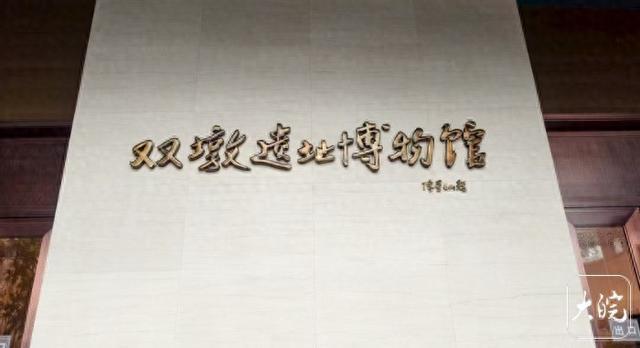 双墩遗址博物馆
大皖
出口